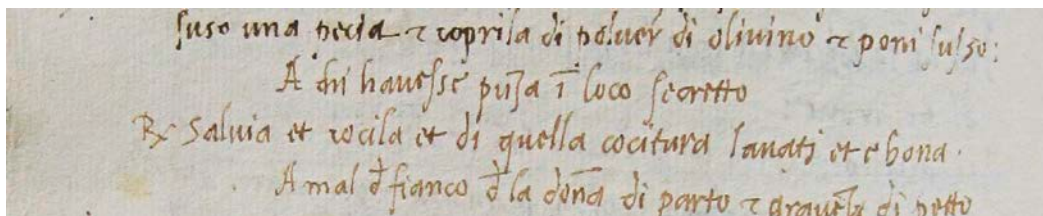 suso una pecia ⁊ coprila di polver di olivino ⁊ poni suso:
A chi havesse puza ī loco secretto
℞ Salvia et cocila et di quella cocitura lavati et e bona.
A mal đ fianco đ la dona di parto ⁊ graveza di petto